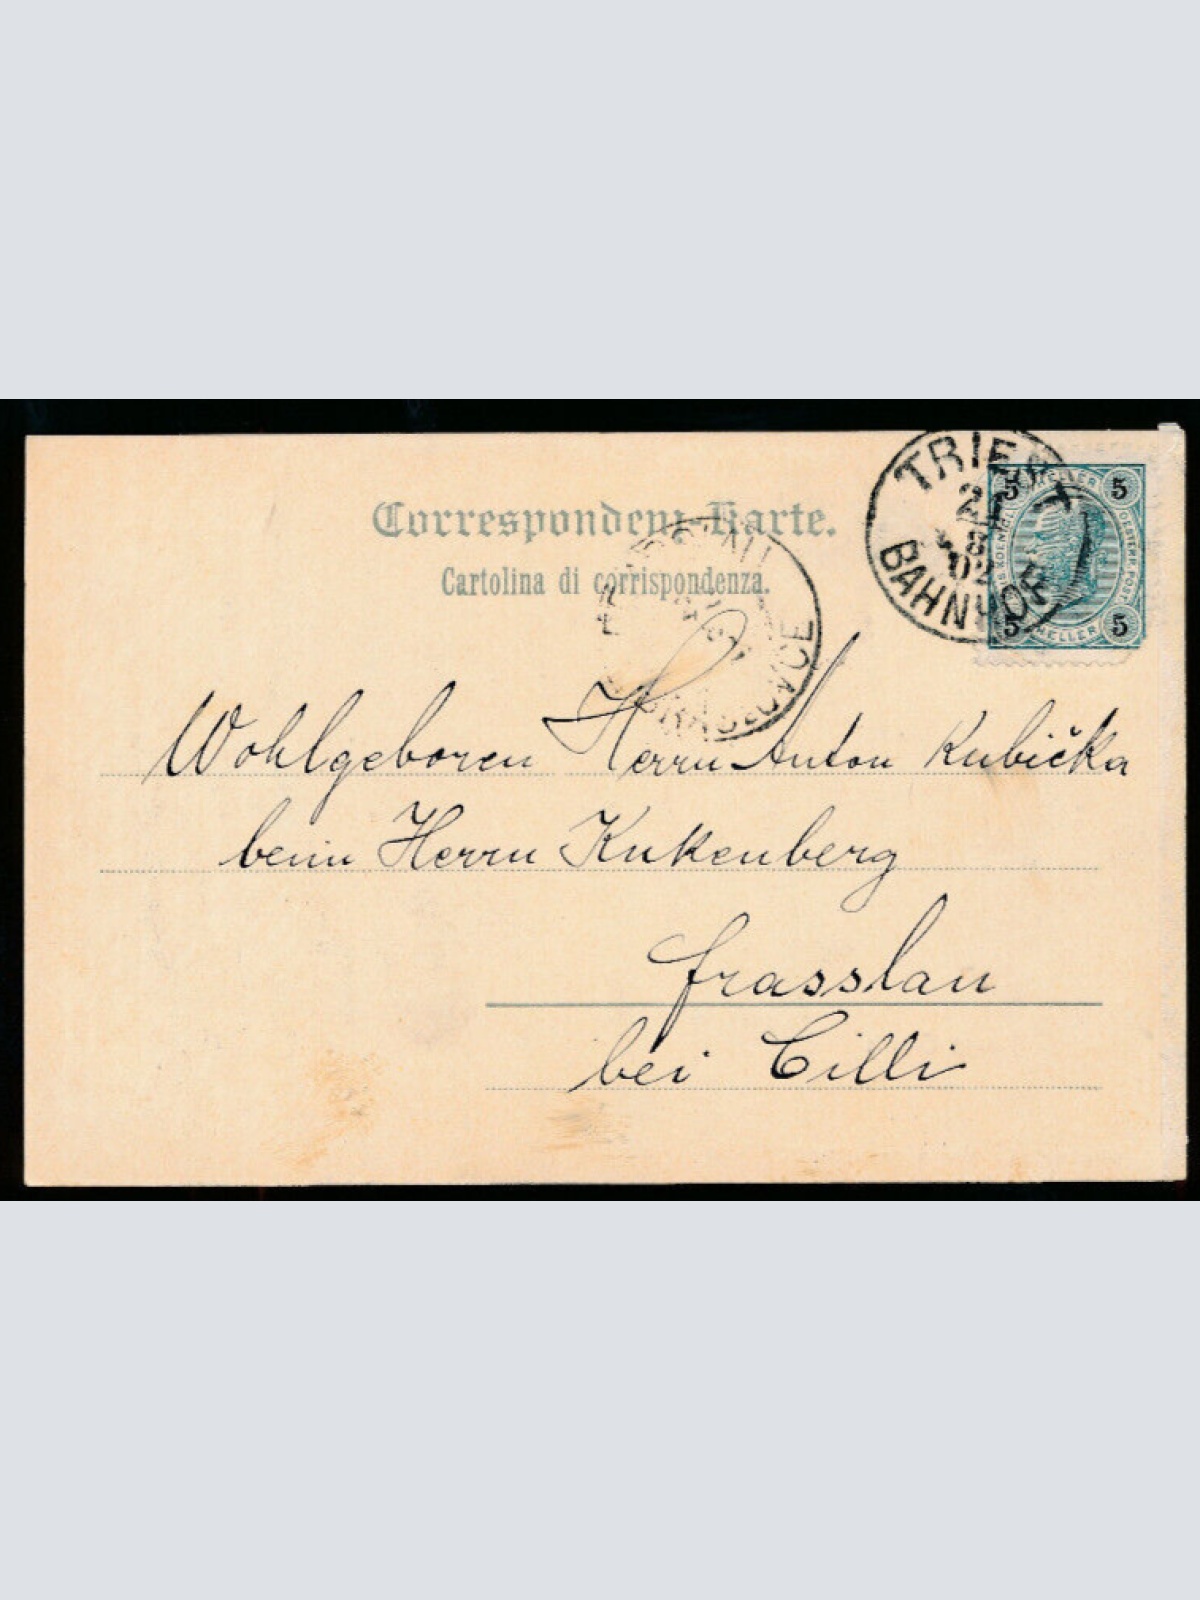 Correspondenz-Karte.
Cartolina di corrispondenza.
TRIEST
21
8
02
BAHNHOF
5 HELLER 5
5 HELLER 5
Wohlgeboren Herrn Anton Kubička
beim Herrn Kukenberg
Frasslau
bei Cilli